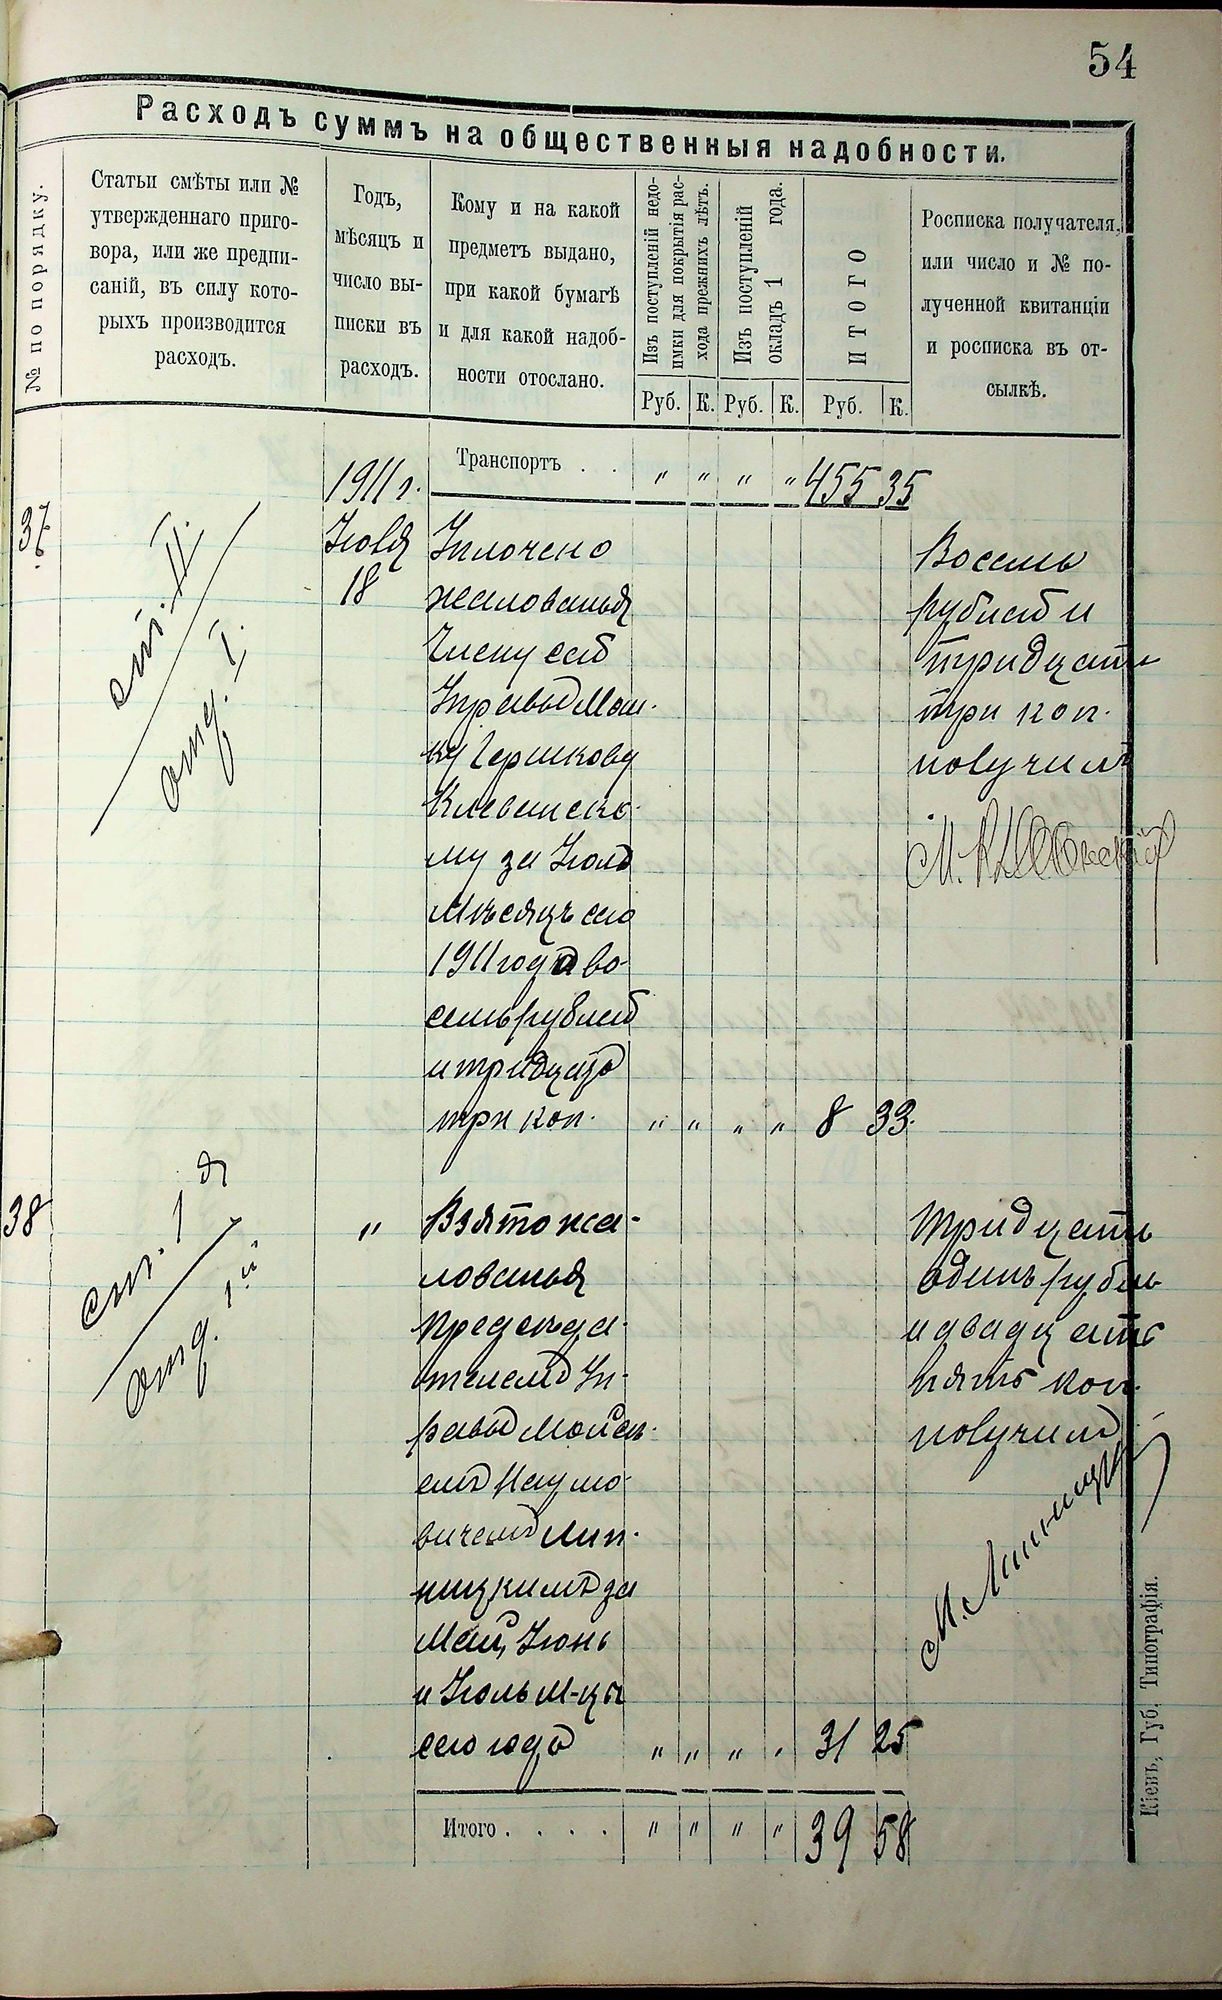 54
Расходъ суммъ на общественныя надобности.
№ по порядку.
Статьи смѣты или №
утвержденнаго приго-
вора, или же предпи-
саній, въ силу кото-
рыхъ производится
расходъ.
Годъ,
мѣсяцъ и
число вы-
писки въ
расходъ.
Кому и на какой
предметъ выдано,
при какой бумагѣ
и для какой надоб-
ности отослано.
Изъ поступленій недо-
имки для покрытія рас-
хода прежнихъ лѣтъ.
Изъ поступленій
окладъ 1 года.
ИТОГО
Росписка получателя,
или число и № по-
лученной квитанціи
и росписка въ от-
сылкѣ.
Руб. К. Руб. К. Руб. К.
1911 г. Транспортъ . . " " " " 455 35
37 ст. II. отд. I. Іюля
18
Уплочено
жалованья
Члену сей
Управы Мош-
ку Гершкову
Клеванско-
му за Іюль
Мѣсяцъ сего
1911 года во-
семь рублей
и тридцать
три коп. " " " " 8 33.
Восемь
рублей и
тридцать
три коп.
получилъ
М. Клеванскій
38 ст. 1я отд. 1й "
Взято жа-
лованья
предсѣда-
телемъ Уп-
равы Мойсе-
емъ Наумо-
вичемъ Лип-
ницкимъ за
Май, Іюнь
и Іюль м-цы
сего года " " " " 31 25
Тридцать
одинъ рубль
и двадцать
пять коп.
получилъ
М. Липницкій
Итого . . . . " " " " 39 58
Кіевъ, Губ. Типографія.